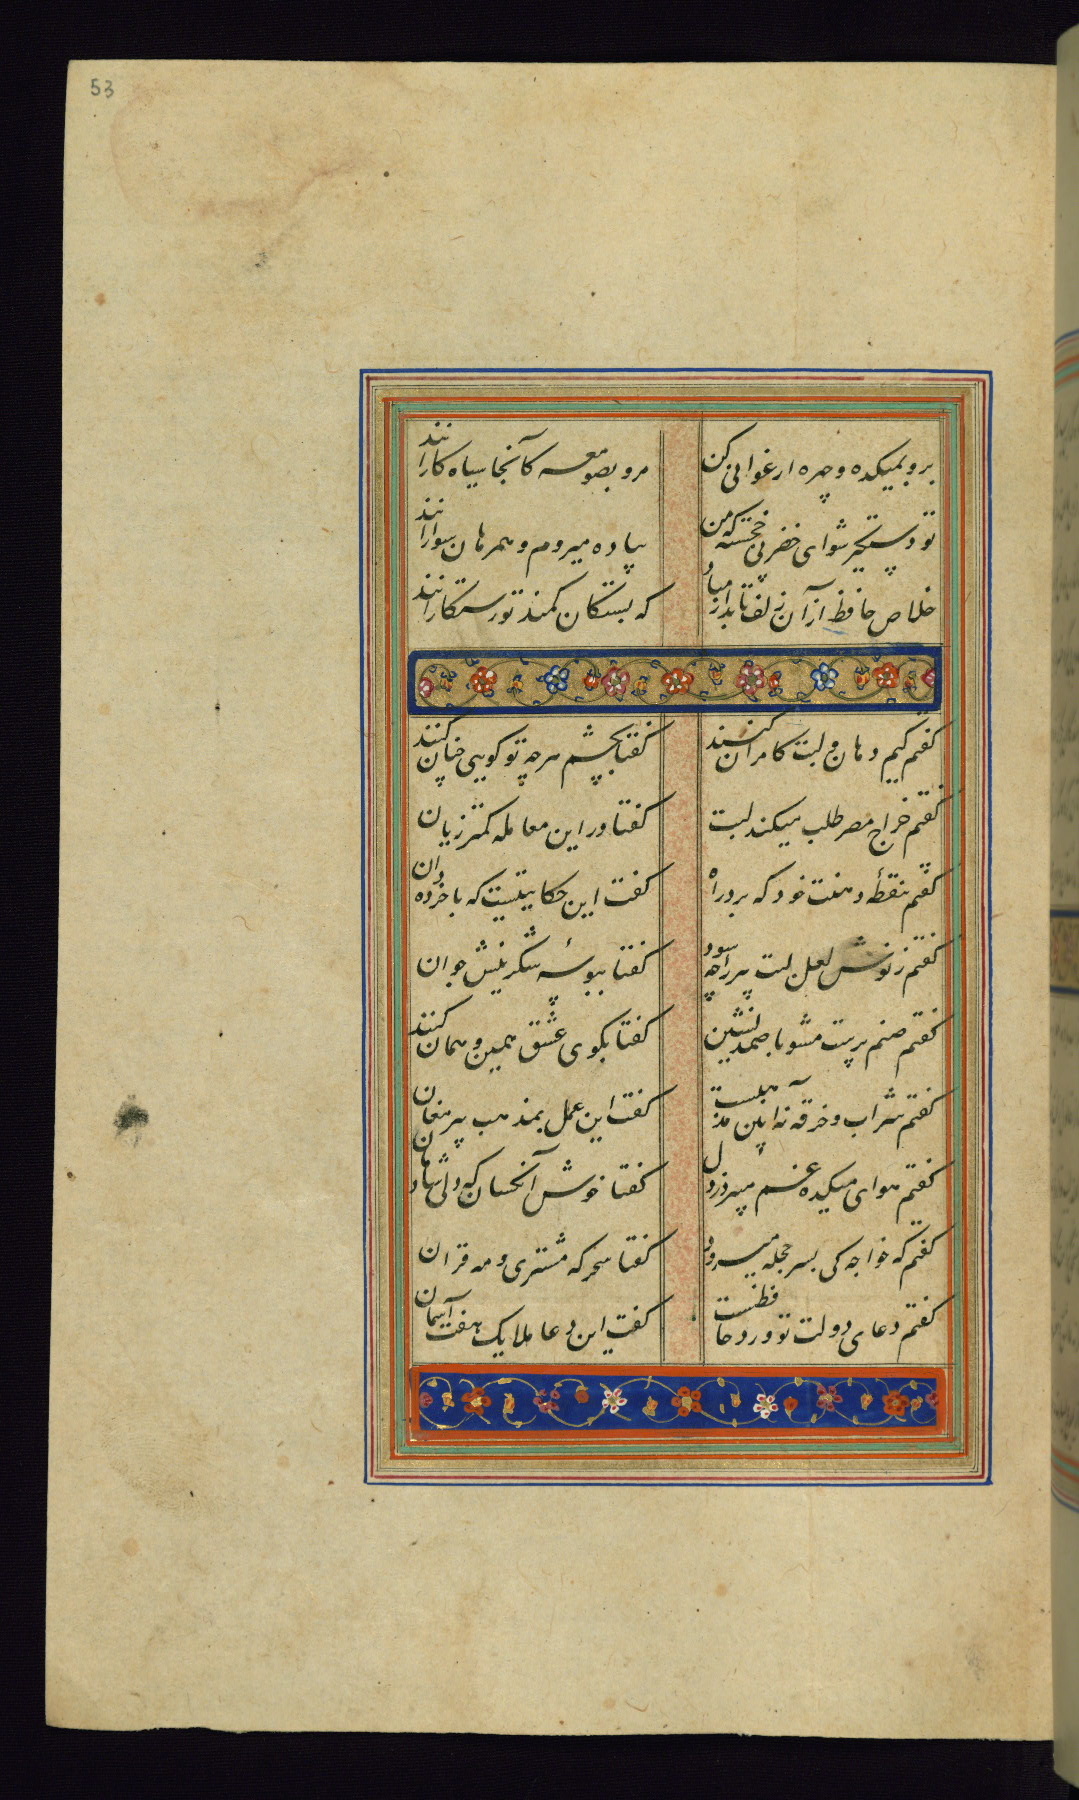 53
برو بمیکده و چهره ارغوانی کن
مرو بصومعه کانجا سیاه کارانند
تو دستگیر شو ای خضر پی خجسته که من
پیاده میروم و همرهان سوارانند
خلاص حافظ از آن زلف تابدار مباد
که بستگان کمند تو رستگارانند
گفتم کیم دهان و لبت کامران کنند
گفتا بچشم هرچه تو گویی چنان کنند
گفتم خراج مصر طلب میکند لبت
گفتا درین معامله کمتر زیان
گفتم بنقطهٔ دهنت خود که برد راه
گفت این حکایتیست که با خرده دان
گفتم ز نوش لعل لبت پیر را چه سود
گفتا ببوسهٔ شکرینش جوان
گفتم صنم پرست مشو با صمد نشین
گفتا بکوی عشق همین و همان کنند
گفتم شراب و خرقه نه آیین مذهبست
گفت این عمل بمذهب پیر مغان
گفتم هوای میکده غم میبرد ز دل
گفتا خوش آنکسان که دلی شادمان
گفتم که خواجه کی بسر حجله میرود
گفتا سحر که مشتری و مه قران
گفتم دعای دولت تو ورد حافظست
گفت این دعا ملایک هفت آسمان